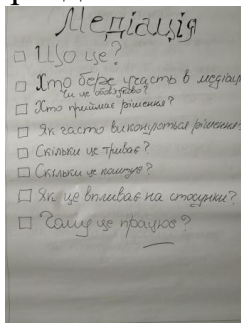 Медіація
Що це?
Хто бере участь в медіац
чи це обов'язково?
Хто приймає рішення?
Як часто виконуються рішення?
Скільки це триває?
Скільки це коштує?
Як це впливає на стосунки?
Чому це працює?